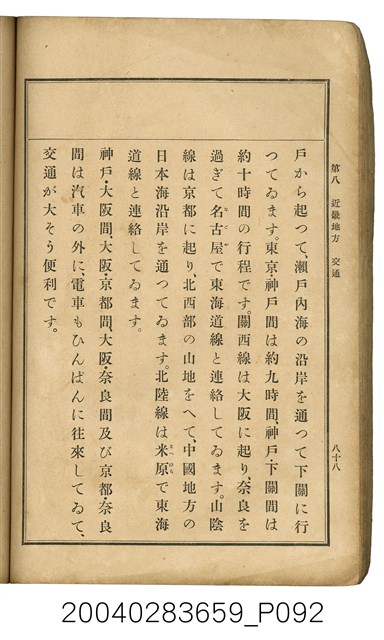 第八 近畿地方 交通
八十八
戶から起つて、瀨戶內海の沿岸を通つて下關に行
つてゐます。東京・神戶間は約九時間、神戶・下關間は
約十時間の行程です。關西線は大阪に起り、奈良を
過ぎて名古屋で東海道線と連絡してゐます。山陰
線は京都に起り、北西部の山地をへて、中國地方の
日本海沿岸を通つてゐます。北陸線は米原で東海
道線と連絡してゐます。
神戶・大阪間、大阪・京都間、大阪・奈良間及び京都・奈良
間は汽車の外に、電車もひんぱんに往來してゐて、
交通が大そう便利です。
20040283659_P092